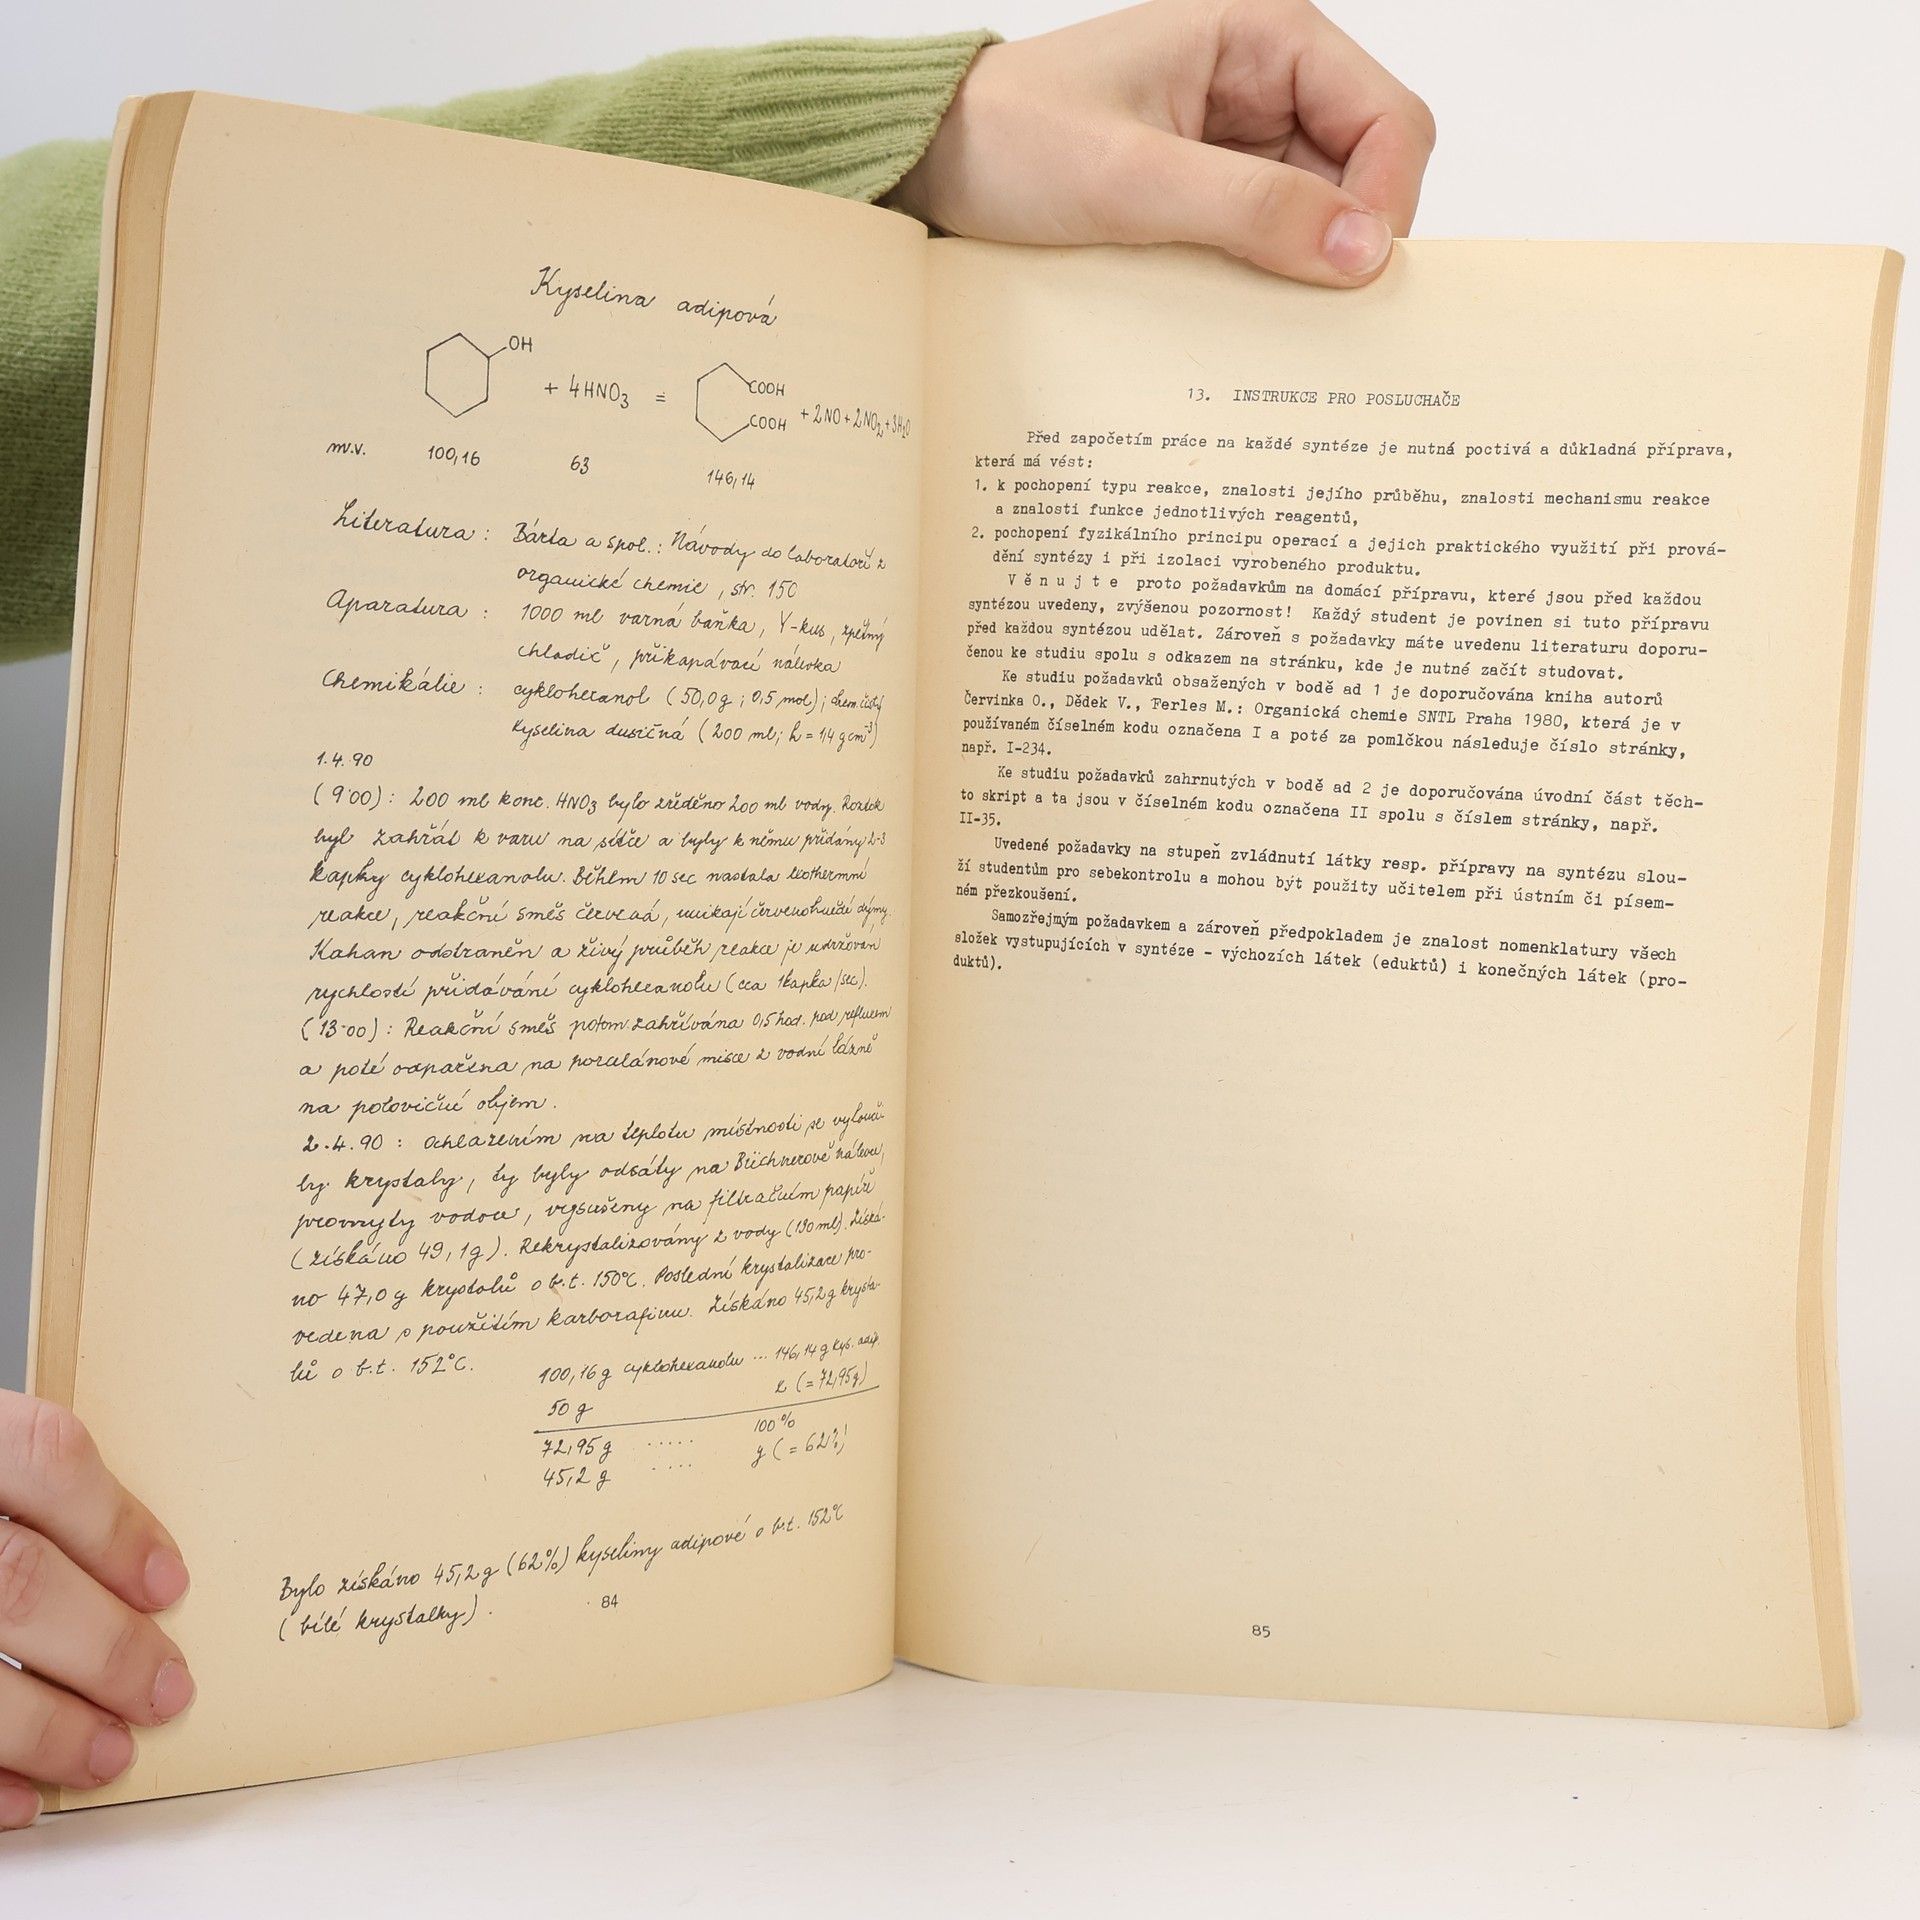 Kyselina adipová
OH
+ 4HNO3 =
COOH
COOH
+ 2NO + 2NO2 + 3H2O
m.v. 100,16 63 146,14
Literatura : Bárta a spol.: Návody do laboratoří z
organické chemie , str. 150
Aparatura : 1000 ml varná baňka, Y-kus, zpětný
chladič, přikapávací nálevka
Chemikálie : cyklohexanol (50,0g ; 0,5 mol); chem. čistý
kyselina dusičná (200 ml; h = 1,4 g cm-3)
1.4.90
(9·00): 200 ml konc. HNO3 bylo zředěno 200 ml vody. Roztok
byl zahřát k varu na síťce a byly k němu přidány 2-3
kapky cyklohexanolu. Během 10 sec nastala exothermní
reakce, reakční směs červená, unikají červenohnědé dýmy.
Kahan odstraněn a živý průběh reakce je udržován
rychlostí přidávání cyklohexanolu (cca 1kapka/sec).
(13·00): Reakční směs potom zahřívána 0,5 hod. pod refluxem
a poté odpařena na porcelánové misce z vodní lázně
na poloviční objem.
2.4.90 : ochlazením na teplotu místnosti se vylouči-
ly krystaly, ty byly odsáty na Büchnerově nálevce,
promyty vodou, vysušeny na filtračním papíře
(získáno 49,1g). Rekrystalizovány z vody (130 ml). Získá-
no 47,0g krystalů o b.t. 150°C. Poslední krystalizace pro-
vedena s použitím karborafinu. Získáno 45,2g krysta-
lů o b.t. 152°C.
100,16g cyklohexanolu ... 146,14g kys. adip.
50 g x (= 72,95g)
72,95 g ..... 100%
45,2 g .... y (= 62%)
Bylo získáno 45,2g (62%) kyseliny adipové o b.t. 152°C
(bílé krystalky).
84
13. INSTRUKCE PRO POSLUCHAČE
Před započetím práce na každé syntéze je nutná poctivá a důkladná příprava,
která má vést:
1. k pochopení typu reakce, znalosti jejího průběhu, znalosti mechanismu reakce
a znalosti funkce jednotlivých reagentů,
2. pochopení fyzikálního principu operací a jejich praktického využití při prová-
dění syntézy i při izolaci vyrobeného produktu.
V ě n u j t e proto požadavkům na domácí přípravu, které jsou před každou
syntézou uvedeny, zvýšenou pozornost! Každý student je povinen si tuto přípravu
před každou syntézou udělat. Zároveň s požadavky máte uvedenu literaturu doporu-
čenou ke studiu spolu s odkazem na stránku, kde je nutné začít studovat.
Ke studiu požadavků obsažených v bodě ad 1 je doporučována kniha autorů
Červinka O., Dědek V., Ferles M.: Organická chemie SNTL Praha 1980, která je v
používaném číselném kodu označena I a poté za pomlčkou následuje číslo stránky,
např. I-234.
Ke studiu požadavků zahrnutých v bodě ad 2 je doporučována úvodní část těch-
to skript a ta jsou v číselném kodu označena II spolu s číslem stránky, např.
II-35.
Uvedené požadavky na stupeň zvládnutí látky resp. přípravy na syntézu slou-
ží studentům pro sebekontrolu a mohou být použity učitelem při ústním či písem-
ném přezkoušení.
Samozřejmým požadavkem a zároveň předpokladem je znalost nomenklatury všech
složek vystupujících v syntéze - výchozích látek (eduktů) i konečných látek (pro-
duktů).
85